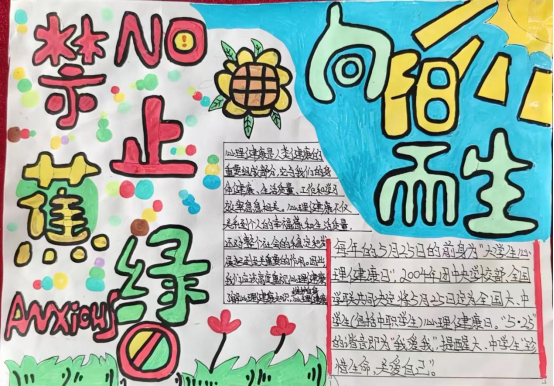 禁
NO!
止
蕉
绿
Anxious
向阳而生
心理健康是人类健康的
重要组成部分，它与我们的身
体健康、生活质量、工作和学习
息息相关。心理健康不仅
关系到个人的幸福感和生活质量，
还对整个社会的
着至关重要的作用。因此
我们应该高度重视心理健康
每年的5月25日的前身为“大学生心
理健康日”，2004年团中央学校部、全国
学联共同决定将5月25日定为全国大、中
学生(包括中职学生)心理健康日。“5·25”
的谐音即为“我爱我”，提醒大、中学生“珍
惜生命、关爱自己”。